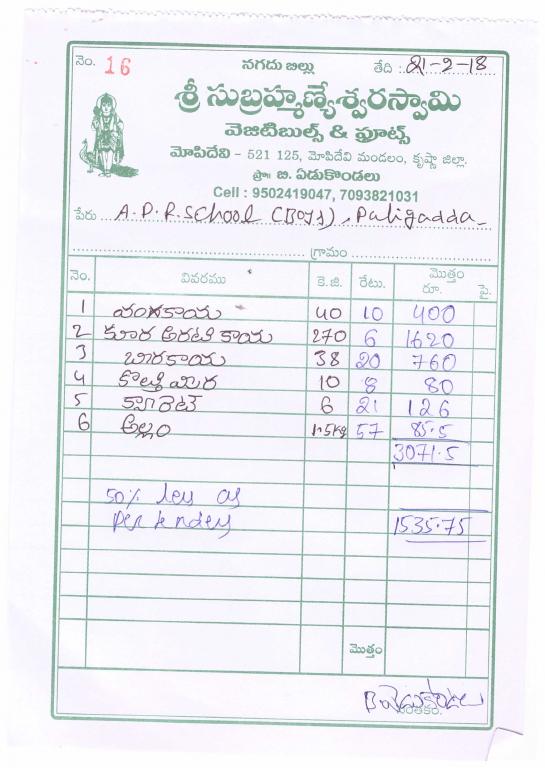 నెం. 16 నగదు బిల్లు తేది : 21-2-18
శ్రీ సుబ్రహ్మణ్యేశ్వరస్వామి
వెజిటిబుల్స్ & ఫ్రూట్స్
మోపిదేవి - 521 125, మోపిదేవి మండలం, కృష్ణా జిల్లా.
ప్రొః బి. ఏడుకొండలు
Cell : 9502419047, 7093821031
పేరు A.P.R.School (Boys), Puligadda
గ్రామం
నెం. వివరము కె.జి. రేటు. మొత్తం
రూ. పై.
1 వంకాయ 40 10 400
2 కూర అరటి కాయ 270 6 1620
3 బీరకాయ 38 20 760
4 కొత్తిమిర 10 8 80
5 క్యారెట్ 6 21 126
6 అల్లం 1.5kg 57 85.5
3071.5
50% less as
per tender 1535.75
మొత్తం
సంతకం.